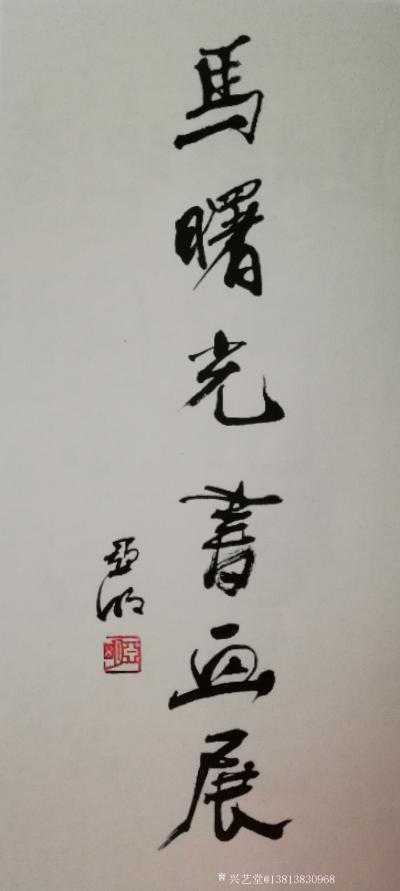 馬曙光書画展
亞明
亞明
兴艺堂@13813830968